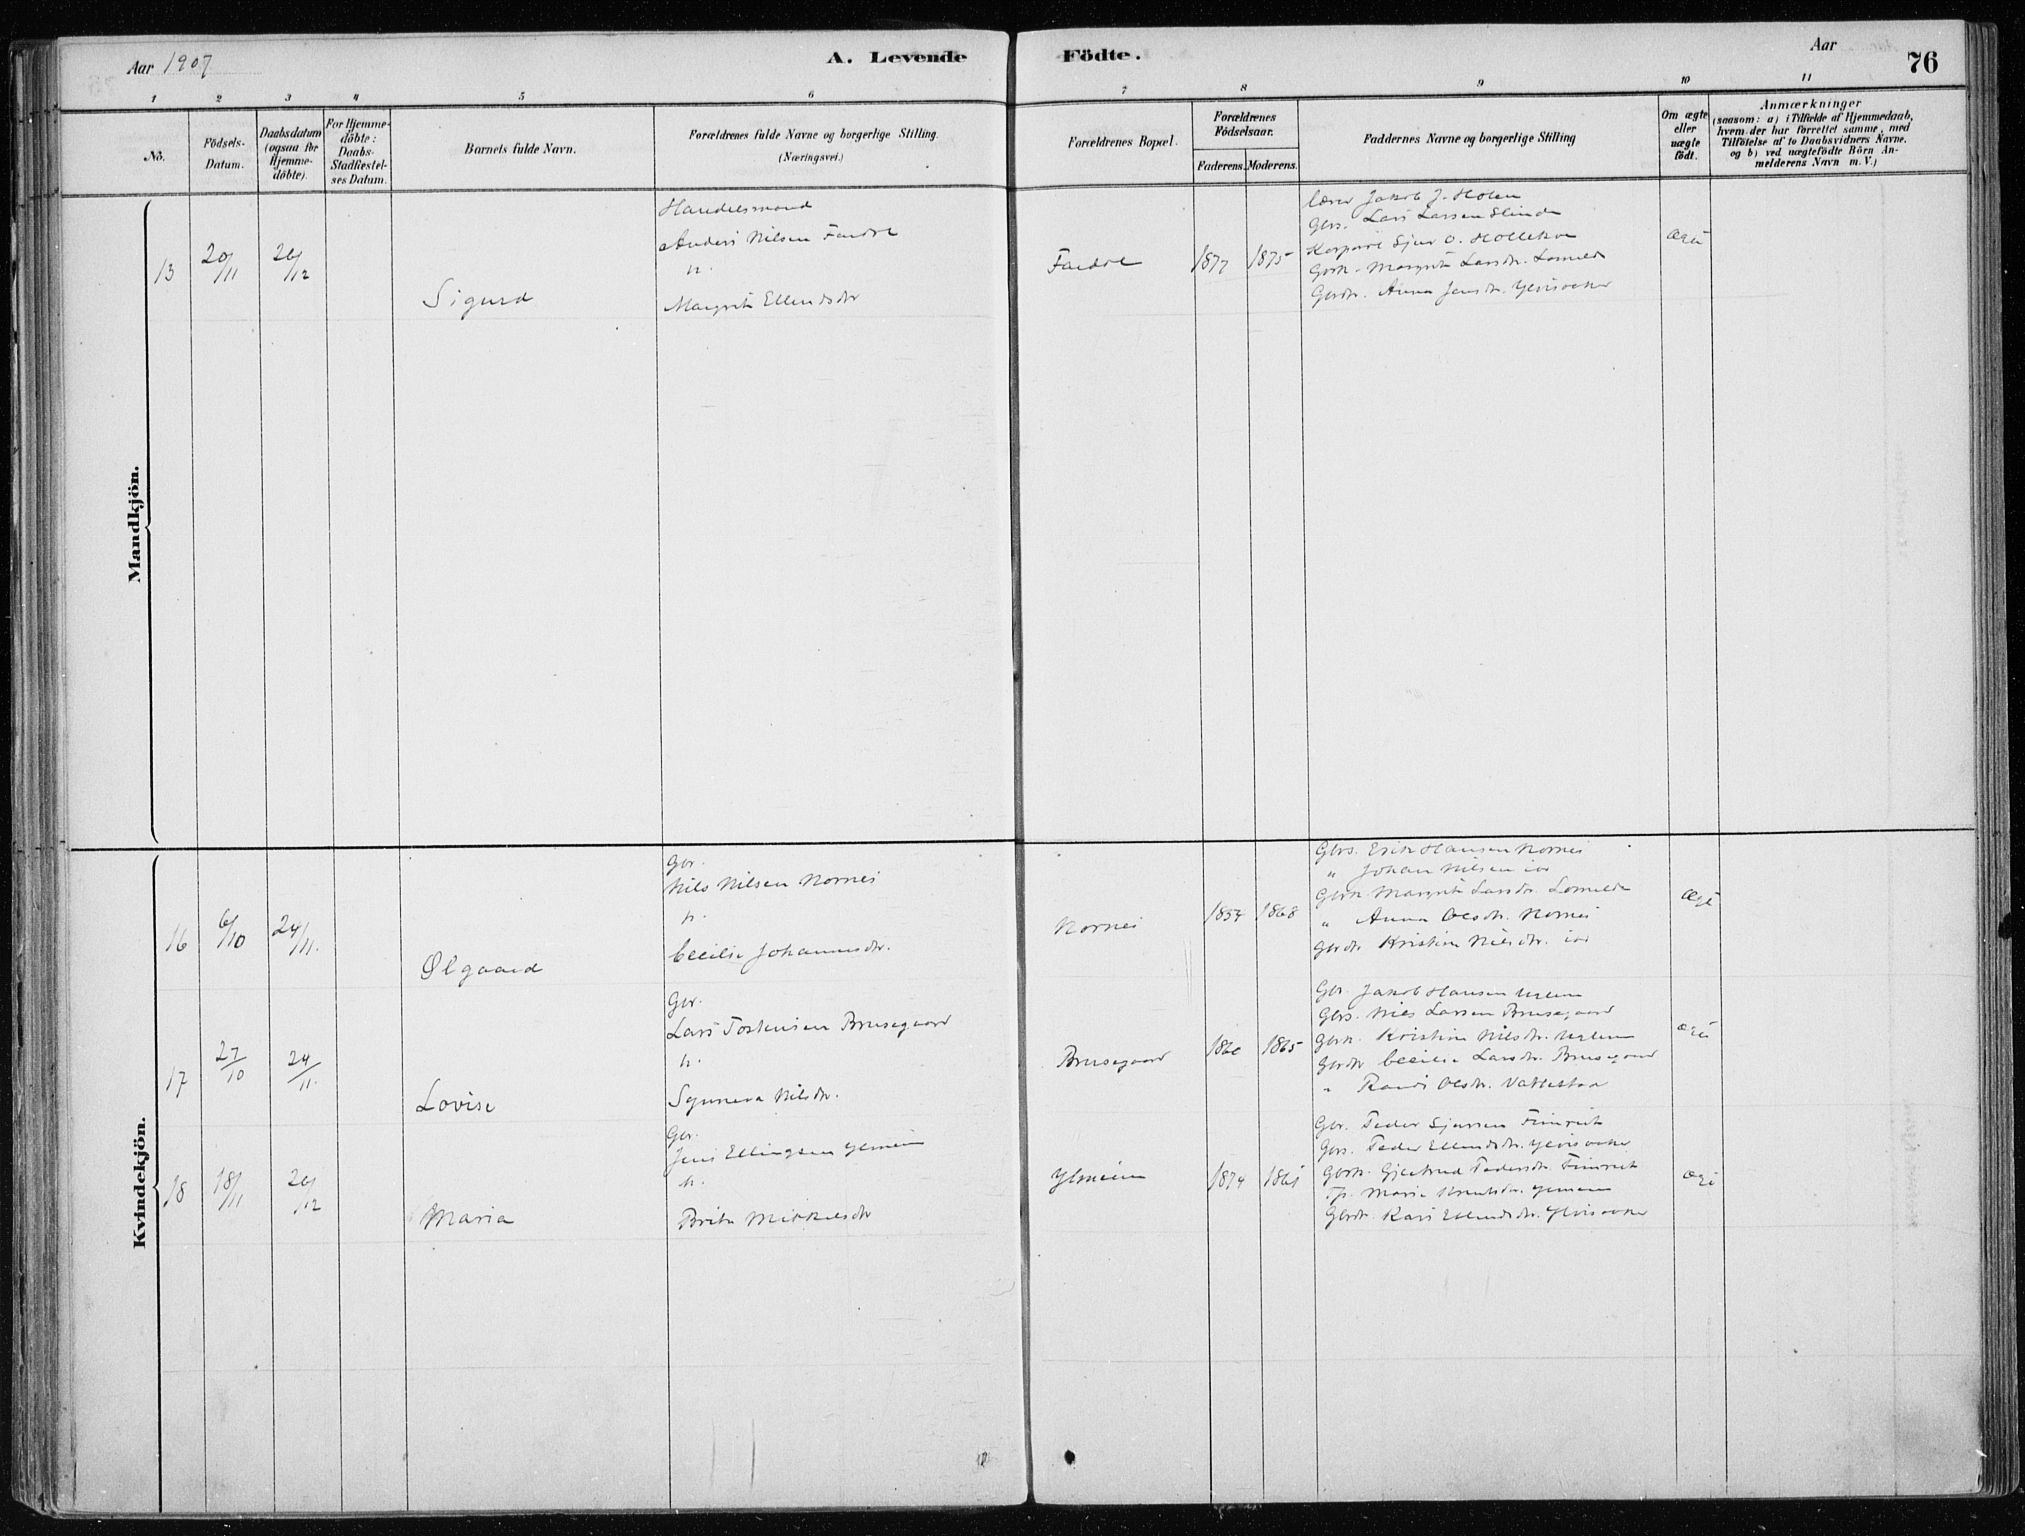 Aar 1907
A. Levende Födte.
Aar
76
1 2 3 4 5 6 7 8 9 10 11
No.
Födsels-Datum.
Daabsdatum (ogsaa for Hjemme-döbte).
For Hjemme-döbte: Daabs-Stadfæstel-ses Datum.
Barnets fulde Navn.
Forældrenes fulde Navne og borgerlige Stilling. (Næringsvei.)
Forældrenes Bopæl.
Forældrenes Födselsaar.
Faderens. Moderens.
Faddernes Navne og borgerlige Stilling
Om ægte eller uægte födt.
Anmærkninger
(saasom: a) i Tilfælde af Hjemmedaab,
hvem der har forrettet samme, med
Tilföielse af to Daabsvidners Navne.
og b) ved uægtefödte Börn An-
melderens Navn m. V.)
Mandkjön.
13
20/11
26/12
Sigurd
Handelsmand
Anders Nilsen Fardal
h.
Margrita Ellendsdtr
Fardal
1877
1875
Lærer Jakob J. Holen
Gbrs. Lars Larsen Slinde
Korporal Sjur O.
Gbrk. Margrita Larsdtr. Lomelde
Gbrdtr. Anna Jensdtr. Ylvisaaker
Kvindekjön.
16
6/10
24/11.
Ølgaard
Gbr.
Nils Nilsen Nornes
h.
Cecilie Johannesdtr.
Nornes
1854
1868
Gbrs. Erik Hansen Nornes
" Johan Nilsen ibd
Gbrk. Margrita Larsdtr. Lomelde
" Anna Olsdtr. Nornes
Gbrdtr. Kristine Nilsdtr. ibd
17
27/10
24/11.
Lovise
Gbr.
Lars Tostensen Brusegaard
h.
Synneva Nilsdtr.
Brusegaard
1865
Gbr. Jakob Hansen
Gbrs. Nils Larsen Brusegaard
Gbrk. Kristine Nilsdtr.
Gbrdtr Cecilie Larsdtr. Brusegaard
" Randi Olsdtr. Vallestad
18
18/11
26/12
Maria
Gbr.
Jens Ellingsen Ylmeim
h.
Brita Mikkelsdtr
Ylmeim
1874
Gbr. Peder Sjursen Fimreite
Gbrs. Peder Ylvisaaker
Gbrk. Gjertrud Pedersdtr. Fimreite
Tp. Maria Ylmeim
Gbrdtr. Kari Ellendsdtr. Ylvisaaker